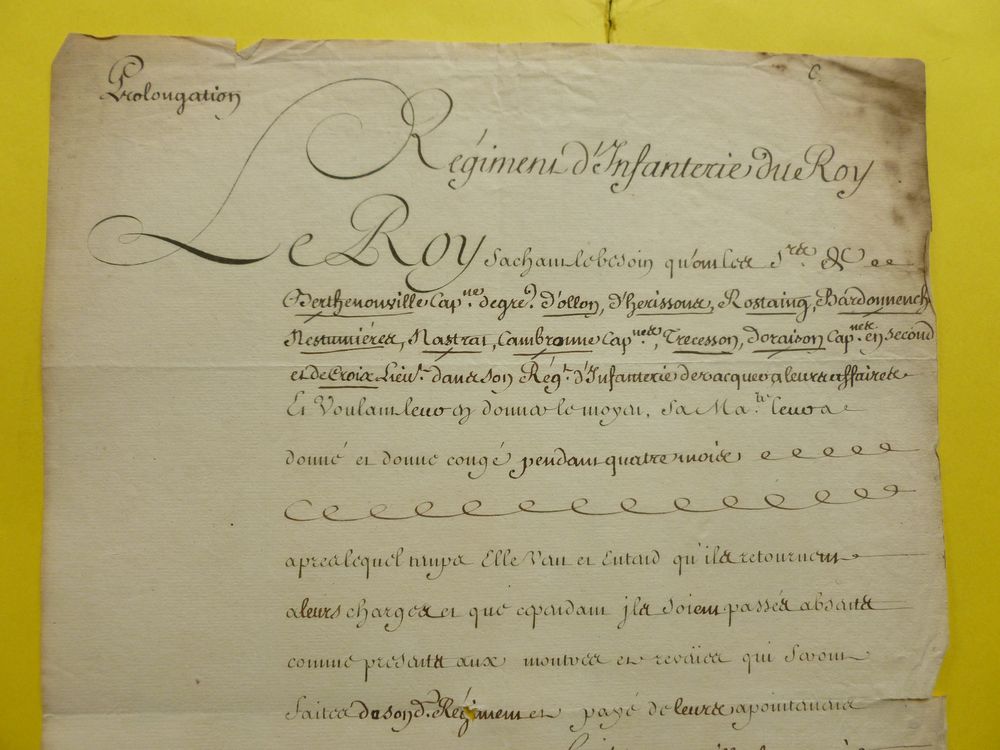 C.
Prolongation
Régiment d'Infanterie du Roy
Le Roy sachant le besoin qu'ont les Srs. De
Berthenonville Capne. de gre[rs]. D'ollon, d'herissons, Rostaing, Bardonnench
Nestumiéres, Nastrat, Cambronne Capnes, Trecesson, Doraison Capnes. en second
et De Croix Lieut. dans son Régt. d'Infanterie de vacquer a leurs affaires
Et Voulant leur en donner le moyen, Sa Maté. leur a
donné et donne congé pendant quatre mois
apres lequel temps Elle Veut et Entend qu'ils retournent
a leurs charges et que cependant ils soient passés absents
comme presents aux montres et revües qui seront
faites de sond. Régiment et payé de leurs apointements